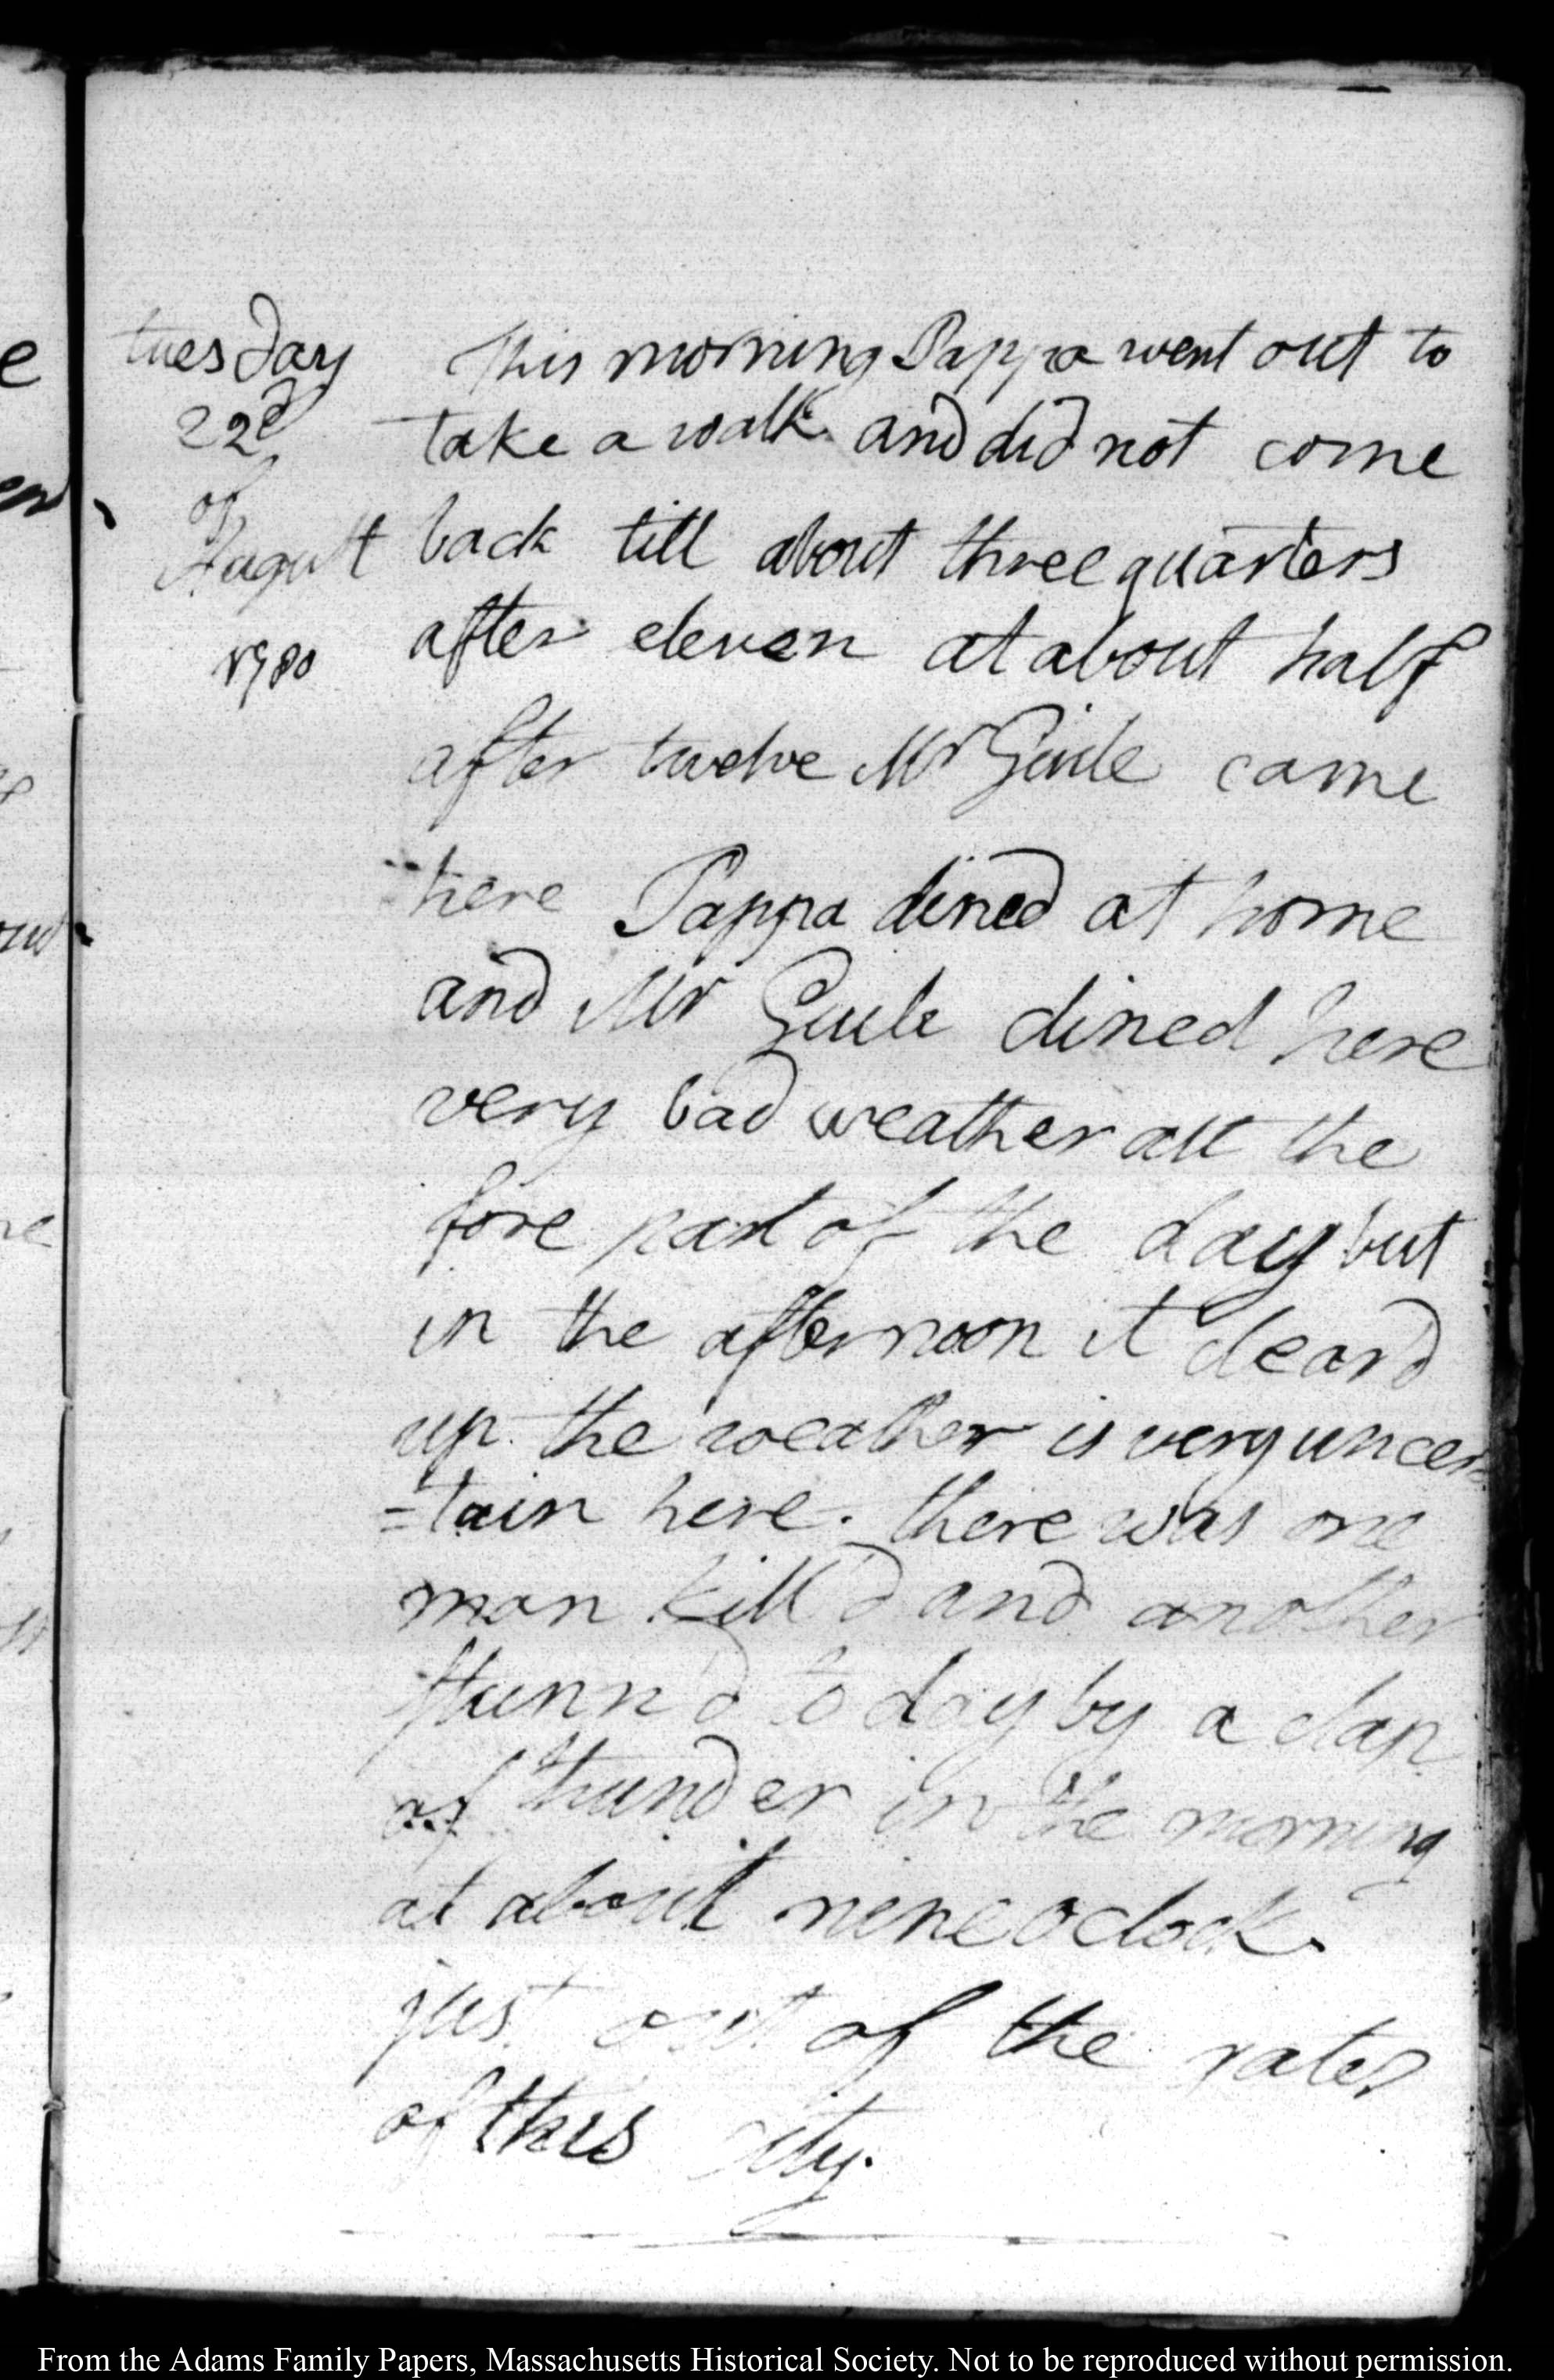 tuesday
22d
of
August
1780
This morning Pappa went out to
take a walk and did not come
back till about three quarters
after eleven at about half
after twelve Mr Guile came
here Pappa dined at home
and Mr Guile dined here
very bad weather all the
fore part of the day but
in the afternoon it cleard
up the weather is very uncer=
=tain here. there was one
man kill'd and another
stunn'd to day by a clap
of thunder in the morning
at about nine o clock
just out of the gates
of this city.
From the Adams Family Papers, Massachusetts Historical Society. Not to be reproduced without permission.